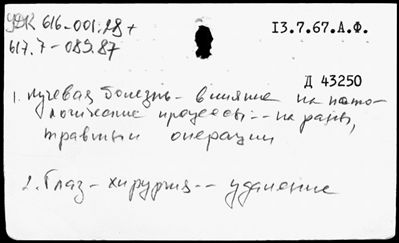 УДК 616-001.28+
617.7-089.87
13.7.67.А.Ф.
Д 43250
1. Лучевая болезнь - влияние на пато-
логические процессы -- на раны,
травмы и операции
2. Глаз - хирургия -- удаление